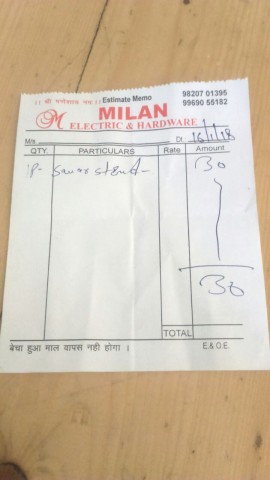 || श्री गणेशाय नमः || Estimate Memo 98207 01395
99690 55182
MILAN
ELECTRIC & HARDWARE
M/s. Dt. 16/1/18
QTY. PARTICULARS Rate Amount
1P- 30
30
TOTAL
बेचा हुआ माल वापस नही होगा । E & O.E